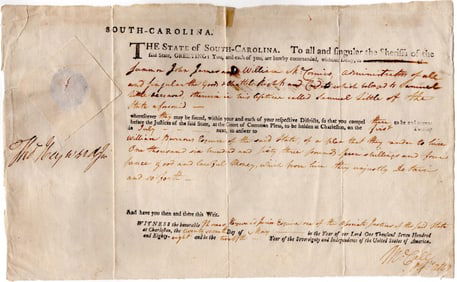 SOUTH-CAROLINA.
THE STATE OF SOUTH-CAROLINA. To all and singular the Sheriffs of the
said State, GREETING: You, and each of you, are hereby commanded, without Delay,
Summon John James and William McCormick, administrators of all
and singular the Goods and Chattels Rights and Credits which belonged to Samuel
deceased, in his lifetime called Samuel Little of the
State aforesaid
wheresoever they may be found, within your and each of your respective Districts, so that you compel them to be and appear
before the Justices of the said State, at the Court of Common Pleas, to be holden at Charleston, on the first Tuesday
in July next, to answer to
William Burrows Esquire of the said State of a plea that they render to him
One thousand six hundred and sixty three pounds four shillings and four
pence good and lawful Money, which from him they unjustly detain
and so forth
And have you then and there this Writ.
WITNESS the honorable Thomas Heyward Junior Esquire one of the Associate Justices of the said State
at Charleston, the twenty second Day of May in the Year of our Lord One Thousand Seven Hundred
and Eighty-eight and in the twelfth Year of the Sovereignty and Independence of the United States of America.
Tho Heyward Junr